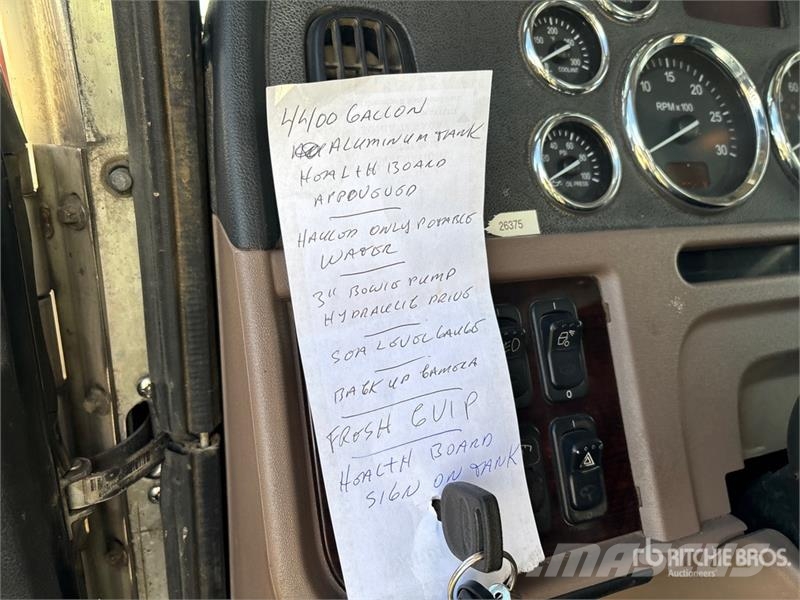 4400 GALLON
ALUMINUM TANK
HEALTH BOARD
APPOUGUED
HAULED ONLY POTABLE
WATER
3" BOWIE PUMP
HYDRAULIC DRIVE
SEA LEVEL GAUGE
BACK UP CAMERA
FRESH CVIP
HEALTH BOARD
SIGN ON TANK
26375
150 200 300
COOLANT
40 60 80 100
PSI
OIL PRESS
10 15 20 25 30
RPM x 100
60
0
RITCHIE BROS.
Auctioneers